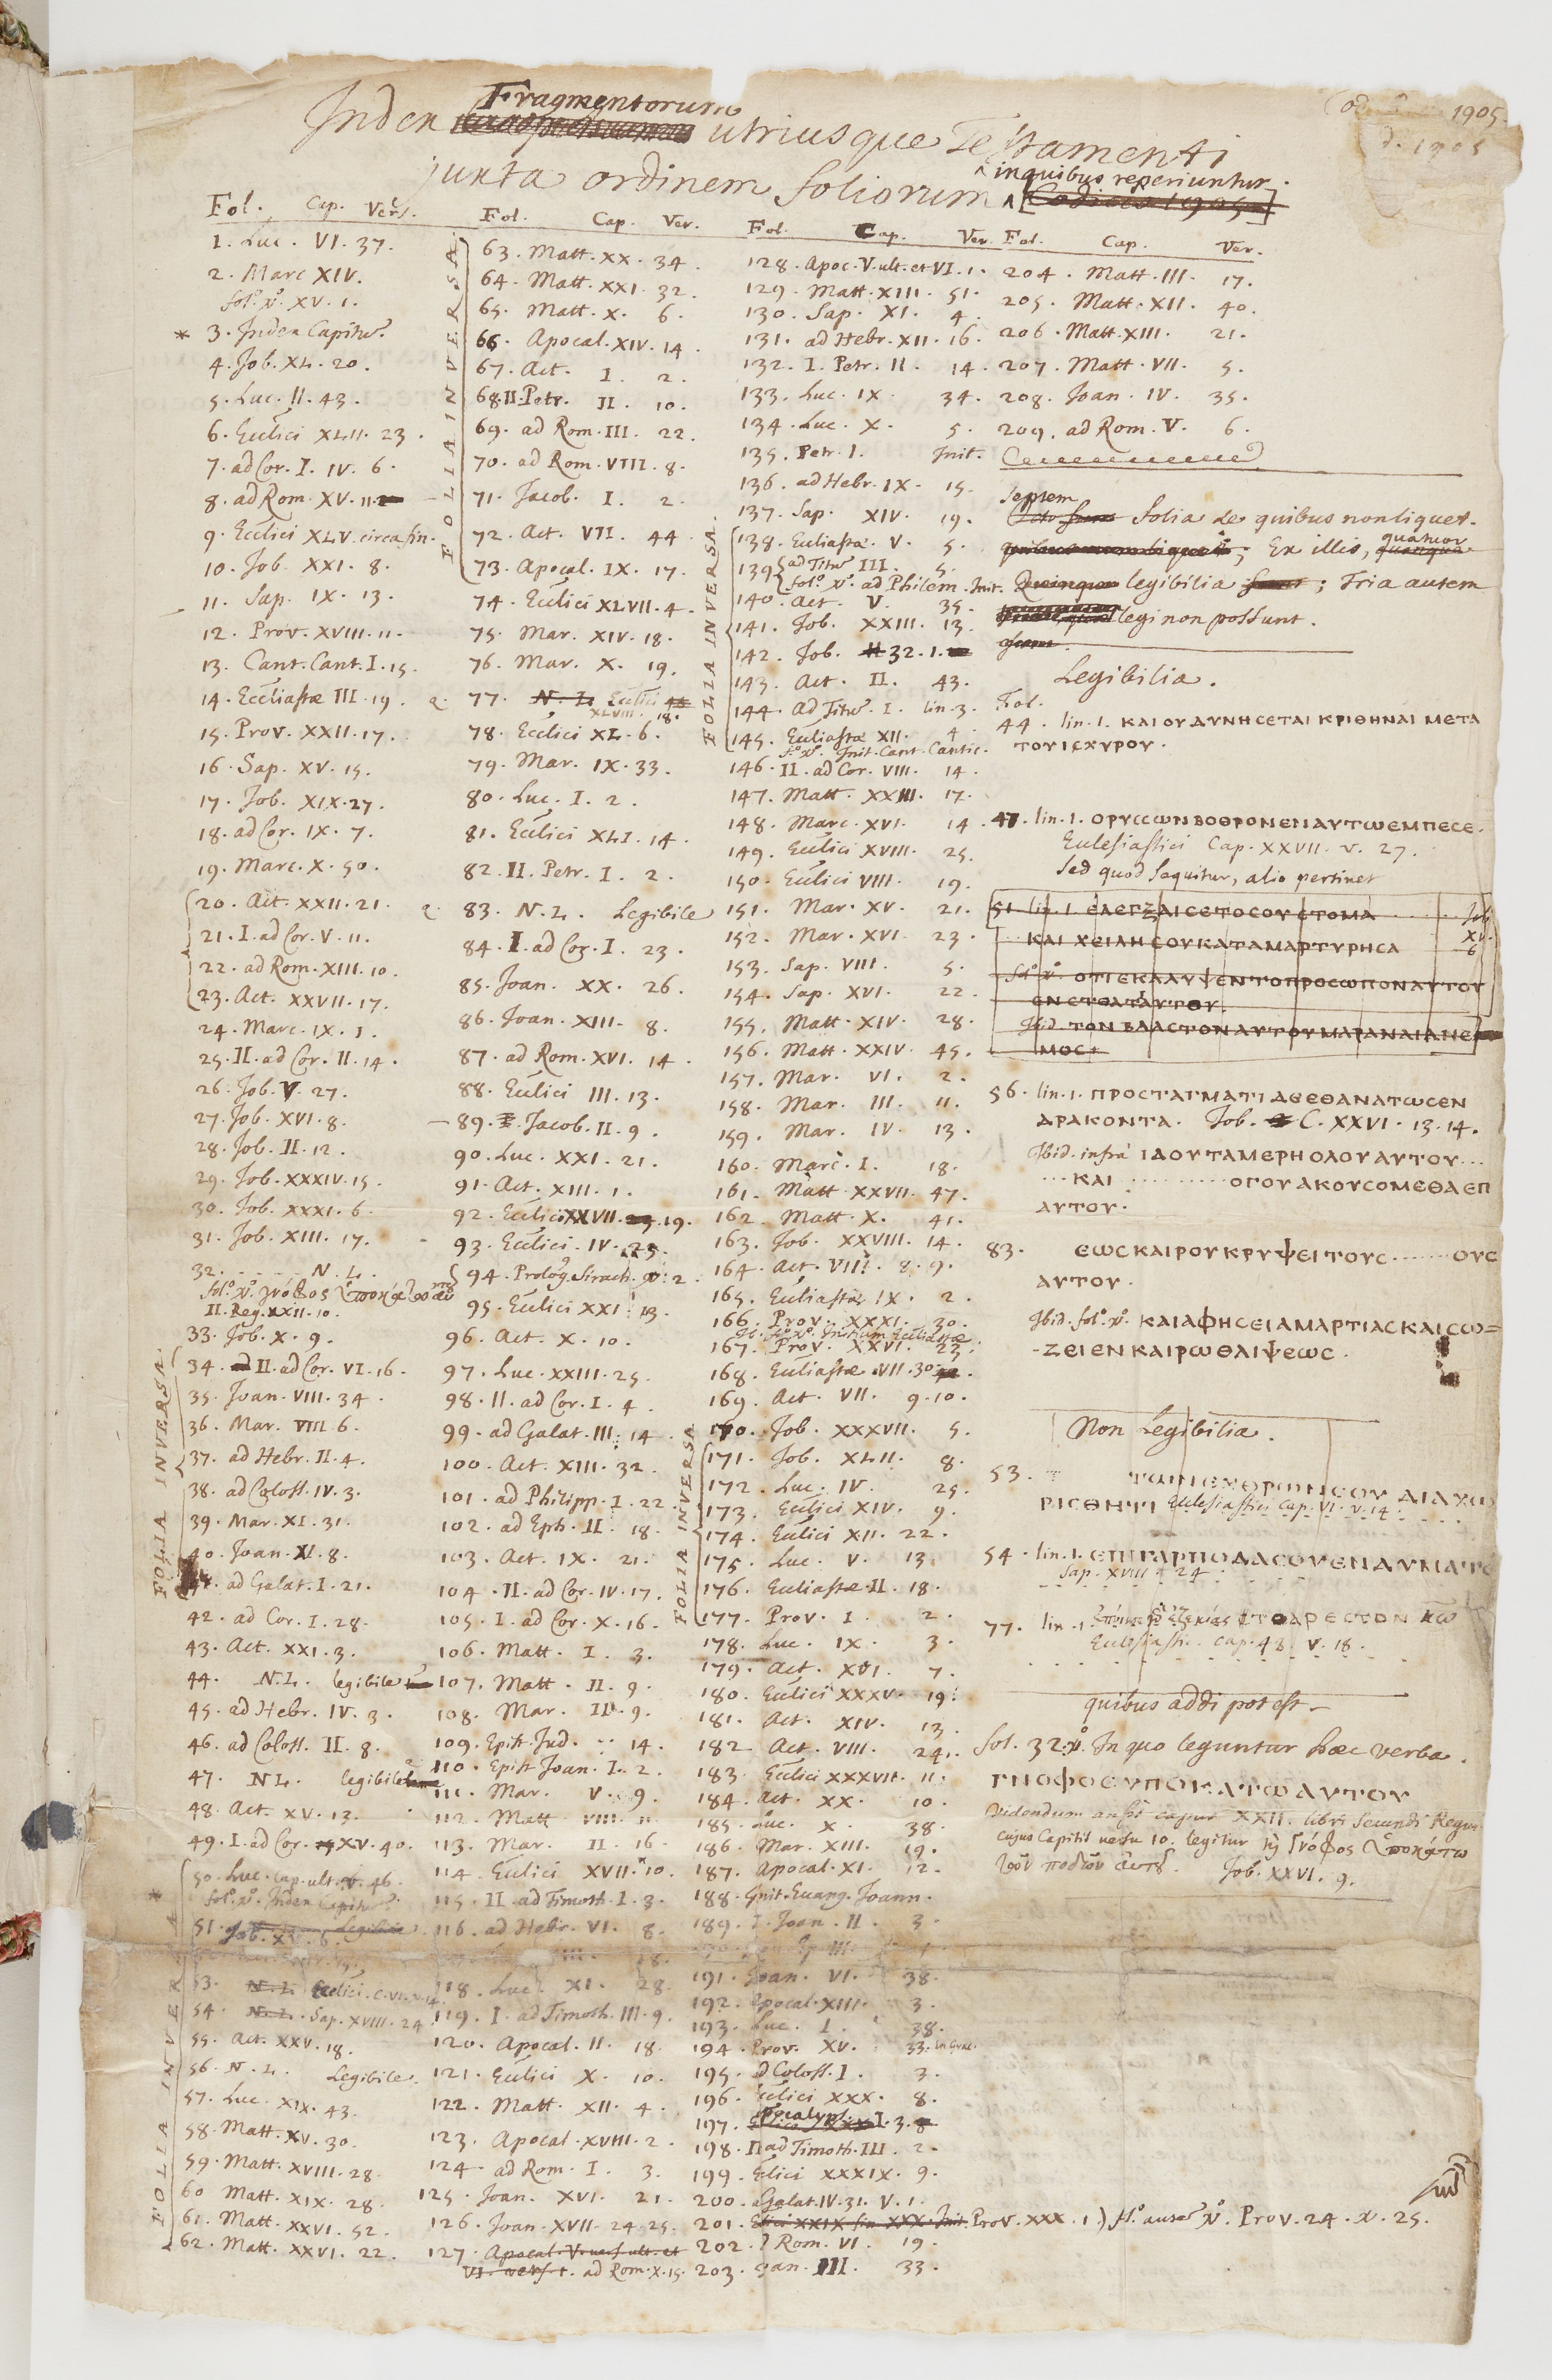 Cod. 1905.
d. 1905
Fragmentorum
Index utriusque Testamenti
juxta ordinem foliorum
in quibus reperiuntur.
Fol. Cap. Vers.
1. Luc. VI. 37.
2. Marc XIV.
fol.º v.º XV. 1.
* 3. Index Capitũ.
4. Job. XL. 20.
5. Luc. II. 43.
6. Ecclici XLII. 23.
7. ad Cor. I. IV. 6.
8. ad Rom. XV. 11.
9. Ecclici XLV. circa fin.
10. Job. XXI. 8.
11. Sap. IX. 13.
12. Prov. XVIII. 11.
13. Cant. Cant. I. 15.
14. Ecclíastæ III. 19.
15. Prov. XXII. 17.
16. Sap. XV. 15.
17. Job. XIX. 27.
18. ad Cor. IX. 7.
19. Marc. X. 50.
20. Act. XXII. 21.
21. I. ad Cor. V. 11.
22. ad Rom. XIII. 10.
23. Act. XXVII. 17.
24. Marc. IX. 1.
25. II. ad Cor. II. 14.
26. Job. V. 27.
27. Job. XVI. 8.
28. Job. II. 12.
29. Job. XXXIV. 15.
30. Job. XXXI. 6.
31. Job. XIII. 17.
32. N. L.
fol.º v.º γνόφος ὑποκάτω
II. Reg. XXII. 10.
33. Job. X. 9.
FOLIA INVERSA.
34. II. ad Cor. VI. 16.
35. Joan. VIII. 34.
36. Mar. VIII. 6.
37. ad Hebr. II. 4.
38. ad Coloss. IV. 3.
39. Mar. XI. 31.
40. Joan. XI. 8.
41. ad Galat. I. 21.
42. ad Cor. I. 28.
43. Act. XXI. 3.
44. N. L. legibile
45. ad Hebr. IV. 3.
46. ad Coloss. II. 8.
47. N L. legibile
48. Act. XV. 13.
49. I. ad Cor. XV. 40.
FOLIA INVERSA
50. Luc. cap. ult. v. 46.
* fol.º v.º Index Capitũ
51. Job. XV. 6.
53. N. L. Ecclici. C. VI. v. 14
54. N. L. Sap. XVIII. 24
55. Act. XXV. 18.
56. N. L. Legibile.
57. Luc. XIX. 43.
58. Matt. XV. 30.
59. Matt. XVIII. 28.
60 Matt. XIX. 28.
61. Matt. XXVI. 52.
62. Matt. XXVI. 22.
Fol. Cap. Ver.
FOLIA INVERSA.
63. Matt. XX. 34.
64. Matt. XXI. 32.
65. Matt. X. 6.
66. Apocal. XIV. 14.
67. Act. I. 2.
68. II. Petr. II. 10.
69. ad Rom. III. 22.
70. ad Rom. VIII. 8.
71. Jacob. I. 2.
72. Act. VII. 44.
73. Apocal. IX. 17.
74. Ecclici XLVII. 4.
75. Mar. XIV. 18.
76. Mar. X. 19.
77. N. L. Ecclici
XLVIII. 18.
78. Ecclici XL. 6.
79. Mar. IX. 33.
80. Luc. I. 2.
81. Ecclici XLI. 14.
82. II. Petr. I. 2.
83. N. L. Legibile
84. I. ad Cor. I. 23.
85. Joan. XX. 26.
86. Joan. XIII. 8.
87. ad Rom. XVI. 14.
88. Ecclici III. 13.
89. Jacob. II. 9.
90. Luc. XXI. 21.
91. Act. XIII. 1.
92. Ecclici XXVII. 19.
93. Ecclici. IV. 23.
94. Prolog. Sirach. v. 2.
95. Ecclici XXI. 13.
96. Act. X. 10.
97. Luc. XXIII. 25.
98. II. ad Cor. I. 4.
99. ad Galat. III. 14.
100. Act. XIII. 32.
101. ad Philipp. I. 22.
102. ad Eph. II. 18.
103. Act. IX. 21.
104. II. ad Cor. IV. 17.
105. I. ad Cor. X. 16.
106. Matt. I. 3.
107. Matt. II. 9.
108. Mar. II. 9.
109. Epist. Jud. 14.
110. Epist Joan. I. 2.
111. Mar. V. 9.
112. Matt VIII. 11
113. Mar. II. 16.
114. Ecclici XVII. 10.
115. II. ad Timoth. I. 3.
116. ad Hebr. VI. 8.
III. 18.
118. Luc. XI. 28.
119. I. ad Timoth. III. 9.
120. Apocal. II. 18.
121. Ecclici X. 10.
122. Matt. XII. 4.
123. Apocal. XVIII. 2.
124. ad Rom. I. 3.
125. Joan. XVI. 21.
126. Joan. XVII. 24. 25.
127. Apocal. V. vers. ult. et
VI. vers. 1. ad Rom. X. 15.
Fol. Cap. Ver.
128. Apoc. V. ult. et VI. 1.
129. Matt. XIII. 51.
130. Sap. XI. 4.
131. ad Hebr. XII. 16.
132. I. Petr. II. 14.
133. Luc. IX. 34.
134. Luc. X. 5.
135. Petr. I. Init.
136. ad Hebr. IX. 15.
137. Sap. XIV. 19.
FOLIA INVERSA.
138. Eccliastæ. V. 5.
139. ad Titũ III. 5.
fol.º v.º ad Philem. Init.
140. Act. V. 35.
141. Job. XXIII. 13.
142. Job. 32. 1.
143. Act. II. 43.
144. ad Titũ. I. lin. 3.
145. Eccliastæ XII. 4.
f.º v.º Init. Cant. Cantic.
146. II. ad Cor. VIII. 14.
147. Matt. XXIII. 17.
148. Marc. XVI. 14.
149. Ecclici XVIII. 25.
150. Ecclici VIII. 19.
151. Mar. XV. 21.
152. Mar. XVI. 23.
153. Sap. VIII. 5.
154. Sap. XVI. 22.
155. Matt. XIV. 28.
156. Matt. XXIV. 45.
157. Mar. VI. 2.
158. Mar. III. 11.
159. Mar. IV. 13.
160. Marc. I. 18.
161. Matt. XXVII. 47.
162. Matt. X. 41.
163. Job. XXVIII. 14.
164. Act. VIII. 8. 9.
165. Eccliastæ IX. 2.
166. Prov. XXXI. 30.
Ib. f.º v.º Initium Eccliastæ.
167. Prov. XXVI. 23.
168. Eccliastæ. VII. 30
169. Act. VII. 9. 10.
170. Job. XXXVII. 5.
FOLIA INVERSA
171. Job. XLII. 8.
172. Luc. IV. 25.
173. Ecclici XIV. 9.
174. Ecclici XII. 22.
175. Luc. V. 13.
176. Eccliastæ II. 18.
177. Prov. I. 2.
178. Luc. IX. 3.
179. Act. XVI. 7.
180. Ecclici XXXV. 19.
181. Act. XIV. 13.
182 Act. VIII. 24.
183. Ecclici XXXVII. 11.
184. Act. XX. 10.
185. Luc. X. 38.
186. Mar. XIII. 19.
187. Apocal. XI. 12.
188. Init. Euang. Joann.
189. I. Joan. II. 3.
191. Joan. VI. 38.
192. Apocal. XIII. 3.
193. Luc. I. 38.
194. Prov. XV. 33. in Græc.
195. ad Coloss. I. 3.
196. Ecclici XXX. 8.
197. Apocalyps. I. 3.
198. II ad Timoth. III. 2.
199. Eclici XXXIX. 9.
200. Galat. IV. 31. V. 1.
201. Eclici XXIX fin XXX. Init. Prov. XXX. 1.) f.º autẽ v.º. Prov. 24. v. 25.
202. Rom. VI. 19.
203. Joan. III. 33.
Fol. Cap. Ver.
204. Matt. III. 17.
205. Matt. XII. 40.
206. Matt. XIII. 21.
207. Matt. VII. 5.
208. Joan. IV. 35.
209. ad Rom. V. 6.
Septem
folia de quibus non liquet.
Ex illis, quatuor
legibilia; Tria autem
legi non possunt.
Legibilia.
Fol.
44. lin. 1. ΚΑΙ ΟΥ ΔΥΝΗCΕΤΑΙ ΚΡΙΘΗΝΑΙ ΜΕΤΑ
ΤΟΥ ΙCΧΥΡΟΥ.
47. lin. 1. ΟΡΥCCΩΝ ΒΟΘΡΟΝ ΕΝ ΑΥΤΩ ΕΜΠΕCΕ.
Eclesiastici Cap. XXVII. v. 27.
Sed quod sequitur, alio pertinet
51. lin. 1. ΕΛΕΓΞΑΙ CΕ ΤΟ CΟΥ CΤΟΜΑ Job
ΚΑΙ ΧΕΙΛΗ CΟΥ ΚΑΤΑΜΑΡΤΥΡΗCΑ XV. 6
fol.º v.º ΟΤΙ ΕΚΑΛΥΨΕΝ ΤΟ ΠΡΟCΩΠΟΝ ΑΥΤΟΥ
ΕΝ CΤΕΑΤΑΥΤΟΥ.
Ibid. ΤΟΝ ΒΛΑCΤΟΝ ΑΥΤΟΥ ΜΑΡΑΝΑΙ ΑΝΕ
ΜΟC.
56. lin. 1. ΠΡΟCΤΑΓΜΑΤΙ ΔΕ ΕΘΑΝΑΤΩCΕΝ
ΔΡΑΚΟΝΤΑ. Job. C. XXVI. 13. 14.
Ibid. infrà ΙΔΟΥ ΤΑ ΜΕΡΗ ΟΔΟΥ ΑΥΤΟΥ...
...ΚΑΙ ......... ΟΓΟΥ ΑΚΟΥCΟΜΕΘΑ ΕΠ
ΑΥΤΟΥ.
83. ΕΩC ΚΑΙΡΟΥ ΚΡΥΨΕΙ ΤΟΥC ...... ΟΥC
ΑΥΤΟΥ.
Ibid. fol.º v.º ΚΑΙ ΑΦΗCΕΙ ΑΜΑΡΤΙΑC ΚΑΙ CΩ=
-ΖΕΙ ΕΝ ΚΑΙΡΩ ΘΛΙΨΕΩC.
Non Legibilia.
53. ΤΩΝ ΕΧΘΡΩΝ CΟΥ ΔΙΑΧΩ
ΡΙCΘΗΤΙ Ecclesiastici Cap. VI. v. 14
54. lin. 1. ΕΠΙ ΓΑΡ ΠΟΔΑCΟΥ ΕΝΔΥΜΑΤΟ
Sap. XVIII. 24.
77. lin. 1 Ἐποίησε Ἐζεκίας ΤΟ ΑΡΕCΤΟΝ Κῶ
Ecclesiasti. cap. 48. v. 18.
quibus addi potest
fol. 32. v.º In quo leguntur hæc verba.
ΓΝΟΦΟC ΥΠΟΚΑΤΩ ΑΥΤΟΥ
Videndum an sit caput XXII. libri Secundi Regum
cujus Capitis versu 10. legitur ϗ Γνόφος ὑποκάτω
τῶν ποδῶν αὐτοῦ. Job. XXVI. 9.